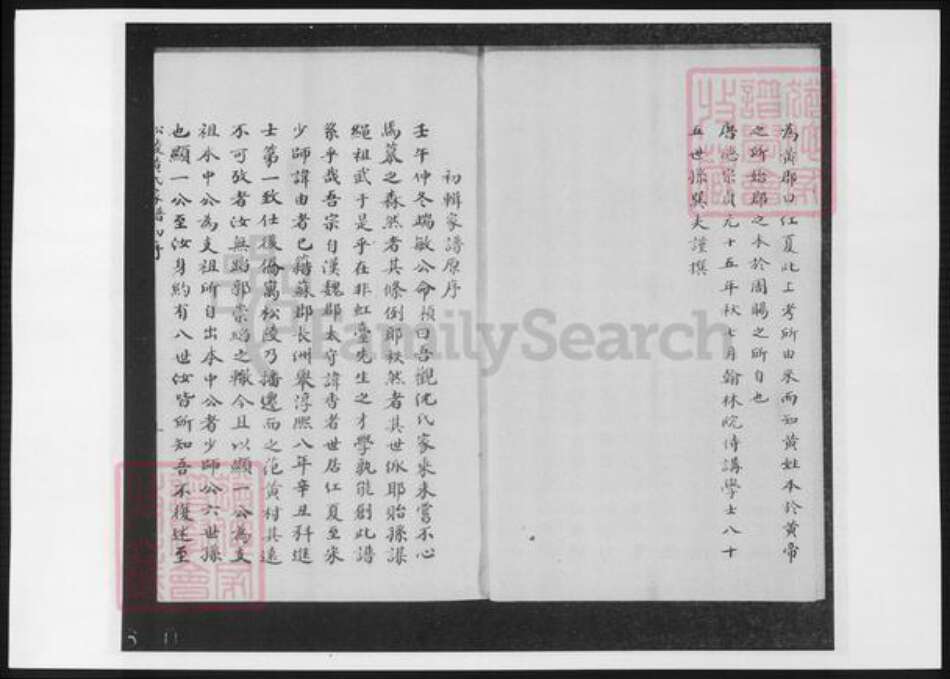 為黃郡曰江夏此上考所由來而知黃姓本於黃帝
之所始郡之本於周賜之所自也
唐德宗貞元十五年秋七月翰林院侍講學士八十
五世孫巽夫謹撰
初輯家譜原序
壬午仲冬端敏公命禎曰吾觀沈氏家乘未嘗不心
馬篆之森然者其條倒耶秩然者其世派耶貽孫謀
繩祖武于是乎在非虹臺先生之才學孰能創此譜
系乎哉吾宗自漢魏郡太守諱香者世居江夏至宋
少師諱由者已籍蘇郡長洲舉淳熙八年辛丑科進
士第一致仕後僑寓松陵乃播遷而之范黃村其遠
不可攷者汝無蹈郭崇韜之轍今且以顯一公為支
祖本中公為支祖所自出本中公者少師公六世孫
也顯一公至汝身約有八世汝皆所知吾不復述至
松陵黃氏家譜初序
FamilySearch